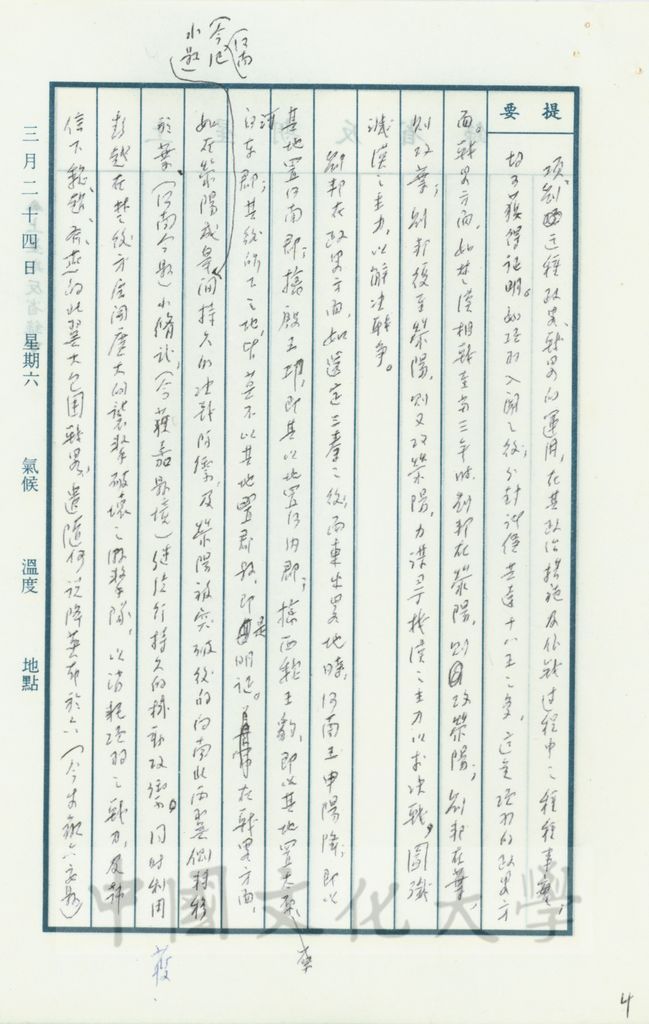 今河南
今汜
水縣
提要
項、劉這種政略、戰略的運用,在其政治措施及作戰過程中之種種事實,
均可獲得証明。如項羽入關之後,分封諸侯共達十八王之多,這是項羽的政略方
面。戰略方面,如楚漢相戰至高三年時,劉邦在滎陽,則攻滎陽;劉邦在葉,
則攻葉;劉邦復至滎陽,則又攻滎陽,力謀尋找漢之主力以求決戰,圖殲
滅漢之主力,以解決戰爭。
劉邦在政略方面,如還定三秦之後,而東出略地時,河南王申陽降,即以
其地置河南郡;擄殷王卬,即其以地置河內郡;擄西魏王豹,即以其地置太原、
河東郡;其後所下之地,毕莫不以其地置郡縣,即是明証。在戰略方面,
如在滎陽成皋間持久的決戰防禦,及滎陽被突破後的向南北兩翼側轉移
於葉(河南今縣)小脩武(今獲嘉縣境)繼續行持久的機動攻衡。同時利用
彭越在楚後方展開龐大的襲擊破壞之游擊隊,以消耗項羽之戰力,及韓
信下魏、趙、齊、燕的北翼大包圍戰略,遣隨何說降英布於六(今安徽六安縣)
三月二十四日 星期六 氣候 溫度 地點
中國文化大學
4